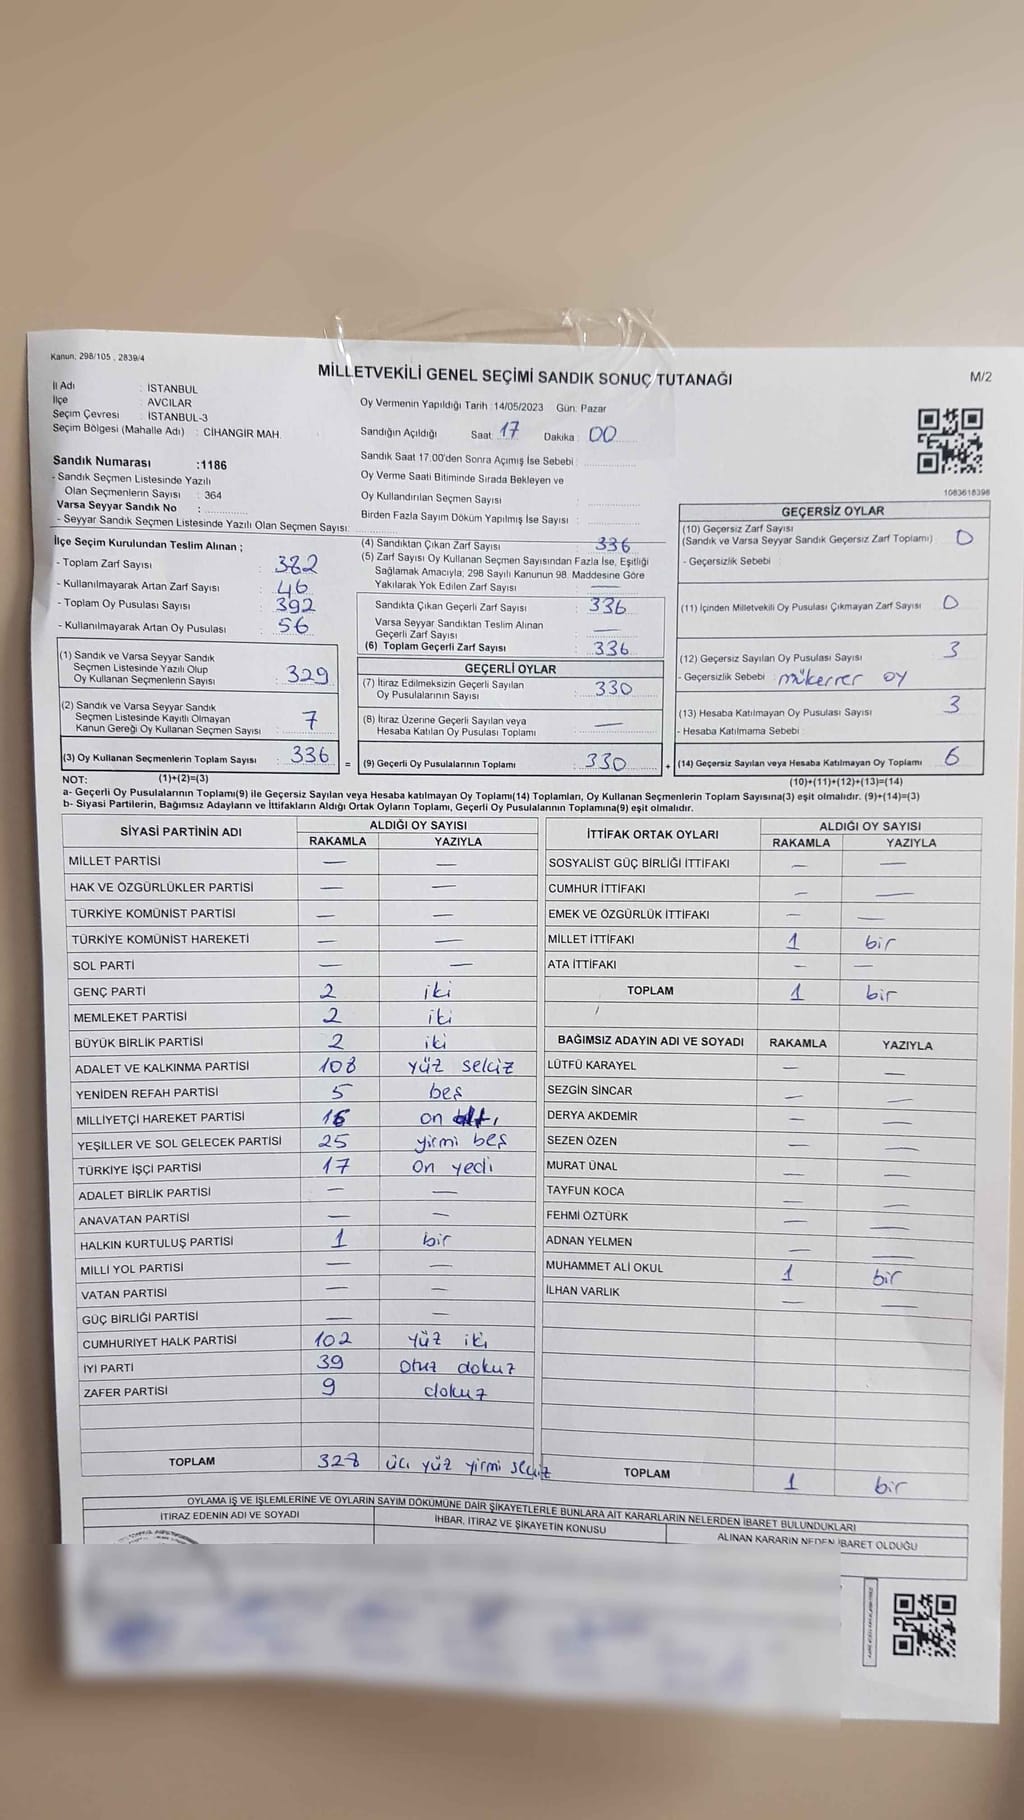 Kanun, 298/105 , 2839/4
MİLLETVEKİLİ GENEL SEÇİMİ SANDIK SONUÇ TUTANAĞI
M/2
İl Adı : İSTANBUL
İlçe : AVCILAR
Seçim Çevresi : İSTANBUL-3
Seçim Bölgesi (Mahalle Adı) : CİHANGİR MAH.
Sandık Numarası :1186
- Sandık Seçmen Listesinde Yazılı
Olan Seçmenlerin Sayısı : 364
Varsa Seyyar Sandık No :
- Seyyar Sandık Seçmen Listesinde Yazılı Olan Seçmen Sayısı:
Oy Vermenin Yapıldığı Tarih :14/05/2023 Gün: Pazar
Sandığın Açıldığı Saat: 17 Dakika : 00
Sandık Saat 17.00'den Sonra Açımış İse Sebebi :
Oy Verme Saati Bitiminde Sırada Bekleyen ve
Oy Kullandırılan Seçmen Sayısı :
Birden Fazla Sayım Döküm Yapılmış İse Sayısı :
1083618398
İlçe Seçim Kurulundan Teslim Alınan ;
- Toplam Zarf Sayısı : 382
- Kullanılmayarak Artan Zarf Sayısı : 46
- Toplam Oy Pusulası Sayısı : 392
- Kullanılmayarak Artan Oy Pusulası : 56
(1) Sandık ve Varsa Seyyar Sandık
Seçmen Listesinde Yazılı Olup
Oy Kullanan Seçmenlerin Sayısı : 329
(2) Sandık ve Varsa Seyyar Sandık
Seçmen Listesinde Kayıtlı Olmayan
Kanun Gereği Oy Kullanan Seçmen Sayısı : 7
(3) Oy Kullanan Seçmenlerin Toplam Sayısı : 336 =
(4) Sandıktan Çıkan Zarf Sayısı : 336
(5) Zarf Sayısı Oy Kullanan Seçmen Sayısından Fazla İse, Eşitliği
Sağlamak Amacıyla; 298 Sayılı Kanunun 98. Maddesine Göre
Yakılarak Yok Edilen Zarf Sayısı : —
Sandıkta Çıkan Geçerli Zarf Sayısı : 336
Varsa Seyyar Sandıktan Teslim Alınan
Geçerli Zarf Sayısı : —
(6) Toplam Geçerli Zarf Sayısı : 336
GEÇERLİ OYLAR
(7) İtiraz Edilmeksizin Geçerli Sayılan
Oy Pusulalarının Sayısı : 330
(8) İtiraz Üzerine Geçerli Sayılan veya
Hesaba Katılan Oy Pusulası Toplamı : —
(9) Geçerli Oy Pusulalarının Toplamı : 330 +
GEÇERSİZ OYLAR
(10) Geçersiz Zarf Sayısı
(Sandık ve Varsa Seyyar Sandık Geçersiz Zarf Toplamı) : 0
- Geçersizlik Sebebi :
(11) İçinden Milletvekili Oy Pusulası Çıkmayan Zarf Sayısı : 0
(12) Geçersiz Sayılan Oy Pusulası Sayısı : 3
- Geçersizlik Sebebi : mükerrer oy
(13) Hesaba Katılmayan Oy Pusulası Sayısı : 3
- Hesaba Katılmama Sebebi :
(14) Geçersiz Sayılan veya Hesaba Katılmayan Oy Toplamı : 6
NOT: (1)+(2)=(3)
(10)+(11)+(12)+(13)=(14)
a- Geçerli Oy Pusulalarının Toplamı(9) ile Geçersiz Sayılan veya Hesaba katılmayan Oy Toplamı(14) Toplamları, Oy Kullanan Seçmenlerin Toplam Sayısına(3) eşit olmalıdır. (9)+(14)=(3)
b- Siyasi Partilerin, Bağımsız Adayların ve İttifakların Aldığı Ortak Oyların Toplamı, Geçerli Oy Pusulalarının Toplamına(9) eşit olmalıdır.
SİYASİ PARTİNİN ADI ALDIĞI OY SAYISI
RAKAMLA YAZIYLA
MİLLET PARTİSİ — —
HAK VE ÖZGÜRLÜKLER PARTİSİ — —
TÜRKİYE KOMÜNİST PARTİSİ — —
TÜRKİYE KOMÜNİST HAREKETİ — —
SOL PARTİ — —
GENÇ PARTİ 2 iki
MEMLEKET PARTİSİ 2 iki
BÜYÜK BİRLİK PARTİSİ 2 iki
ADALET VE KALKINMA PARTİSİ 108 yüz sekiz
YENİDEN REFAH PARTİSİ 5 beş
MİLLİYETÇİ HAREKET PARTİSİ 16 on altı
YEŞİLLER VE SOL GELECEK PARTİSİ 25 yirmi beş
TÜRKİYE İŞÇİ PARTİSİ 17 on yedi
ADALET BİRLİK PARTİSİ — —
ANAVATAN PARTİSİ — —
HALKIN KURTULUŞ PARTİSİ 1 bir
MİLLİ YOL PARTİSİ — —
VATAN PARTİSİ — —
GÜÇ BİRLİĞİ PARTİSİ — —
CUMHURİYET HALK PARTİSİ 102 yüz iki
İYİ PARTİ 39 otuz dokuz
ZAFER PARTİSİ 9 dokuz
TOPLAM 328 üç yüz yirmi sekiz
İTTİFAK ORTAK OYLARI ALDIĞI OY SAYISI
RAKAMLA YAZIYLA
SOSYALİST GÜÇ BİRLİĞİ İTTİFAKI — —
CUMHUR İTTİFAKI — —
EMEK VE ÖZGÜRLÜK İTTİFAKI — —
MİLLET İTTİFAKI 1 bir
ATA İTTİFAKI — —
TOPLAM 1 bir
BAĞIMSIZ ADAYIN ADI VE SOYADI RAKAMLA YAZIYLA
LÜTFÜ KARAYEL — —
SEZGİN SİNCAR — —
DERYA AKDEMİR — —
SEZEN ÖZEN — —
MURAT ÜNAL — —
TAYFUN KOCA — —
FEHMİ ÖZTÜRK — —
ADNAN YELMEN — —
MUHAMMET ALİ OKUL 1 bir
İLHAN VARLIK — —
TOPLAM 1 bir
OYLAMA İŞ VE İŞLEMLERİNE VE OYLARIN SAYIM DÖKÜMÜNE DAİR ŞİKAYETLERLE BUNLARA AİT KARARLARIN NELERDEN İBARET BULUNDUKLARI
İTİRAZ EDENİN ADI VE SOYADI
İHBAR, İTİRAZ VE ŞİKAYETİN KONUSU
ALINAN KARARIN NEDEN İBARET OLDUĞU